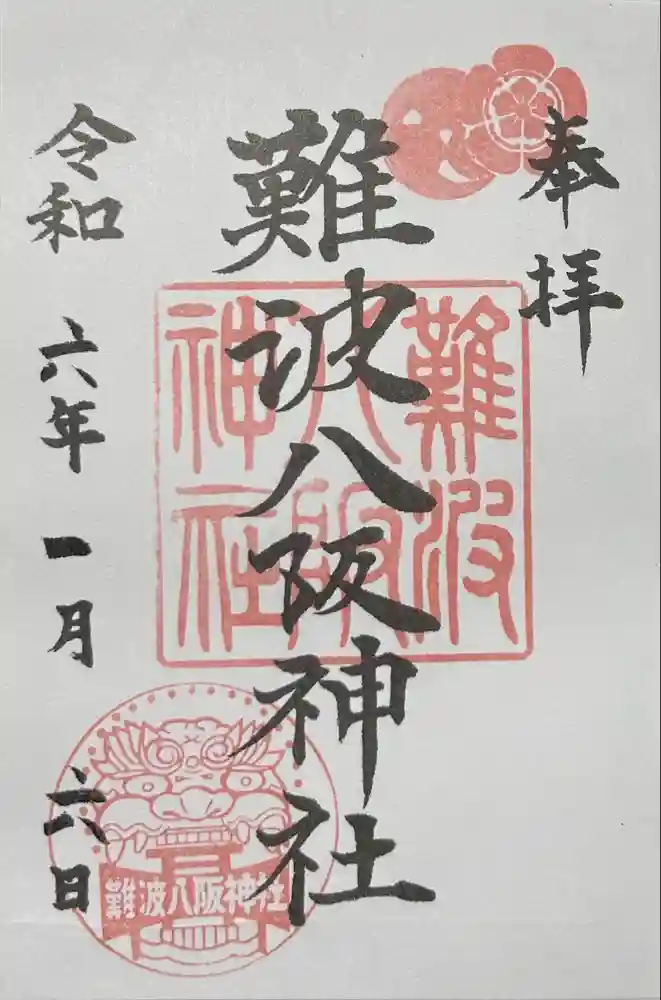 奉拝
難波八阪神社
難波
八阪
神社
令和 六年 一月 六日
難波八阪神社